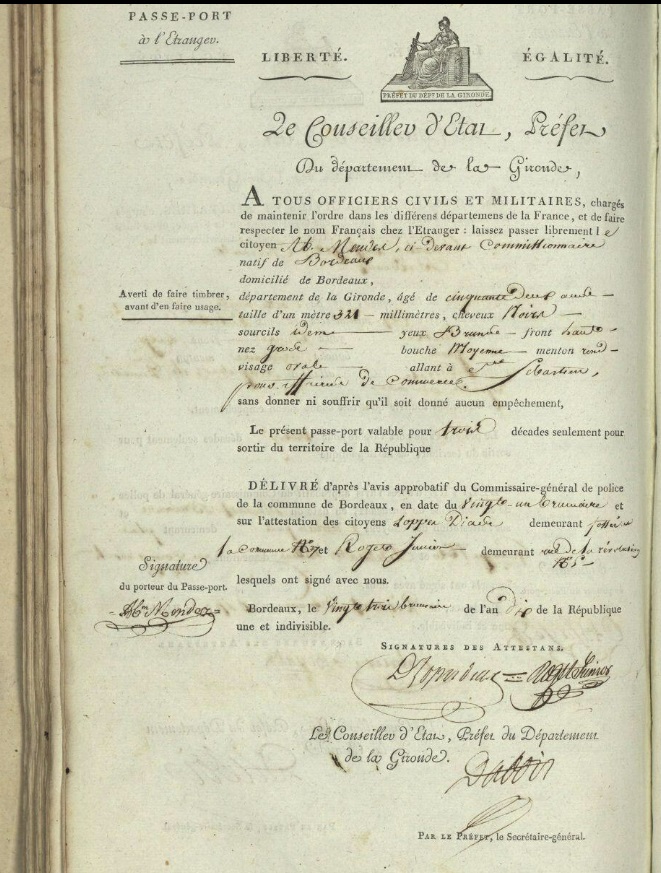 PASSE-PORT
à l'Etranger.
LIBERTÉ.
ÉGALITÉ.
PRÉFET DU DÉPT DE LA GIRONDE.
Le Conseiller d'Etat, Préfet
Du département de la Gironde,
A TOUS OFFICIERS CIVILS ET MILITAIRES, chargés
de maintenir l'ordre dans les différens départemens de la France, et de faire
respecter le nom Français chez l'Etranger : laissez passer librement le
citoyen Ab. Mendes, ci devant Commissionnaire
natif de Bordeaux
domicilié de Bordeaux,
Averti de faire timbrer,
avant d'en faire usage.
département de la Gironde, âgé de cinquante deux ans
taille d'un mètre 321 millimètres, cheveux Noirs
sourcils idem yeux Bruns front haut
nez gros bouche Moyenne menton rond
visage ovale allant à Sebastien,
pour affaires de Commerce.
sans donner ni souffrir qu'il soit donné aucun empêchement,
Le présent passe-port valable pour trois décades seulement pour
sortir du territoire de la République
DÉLIVRÉ d'après l'avis approbatif du Commissaire-général de police
de la commune de Bordeaux, en date du Vingt-un Brumaire et
sur l'attestation des citoyens Lopes Dias demeurant
la commune et Roget Junior demeurant de la révolution
lesquels ont signé avec nous.
Signature
du porteur du Passe-port.
Abm Mendes
Bordeaux, le Vingt trois brumaire de l'an dix de la République
une et indivisible.
SIGNATURES DES ATTESTANS.
Roget Junior
Le Conseiller d'Etat, Préfet du Département
de la Gironde.
PAR LE PRÉFET, le Secrétaire-général.